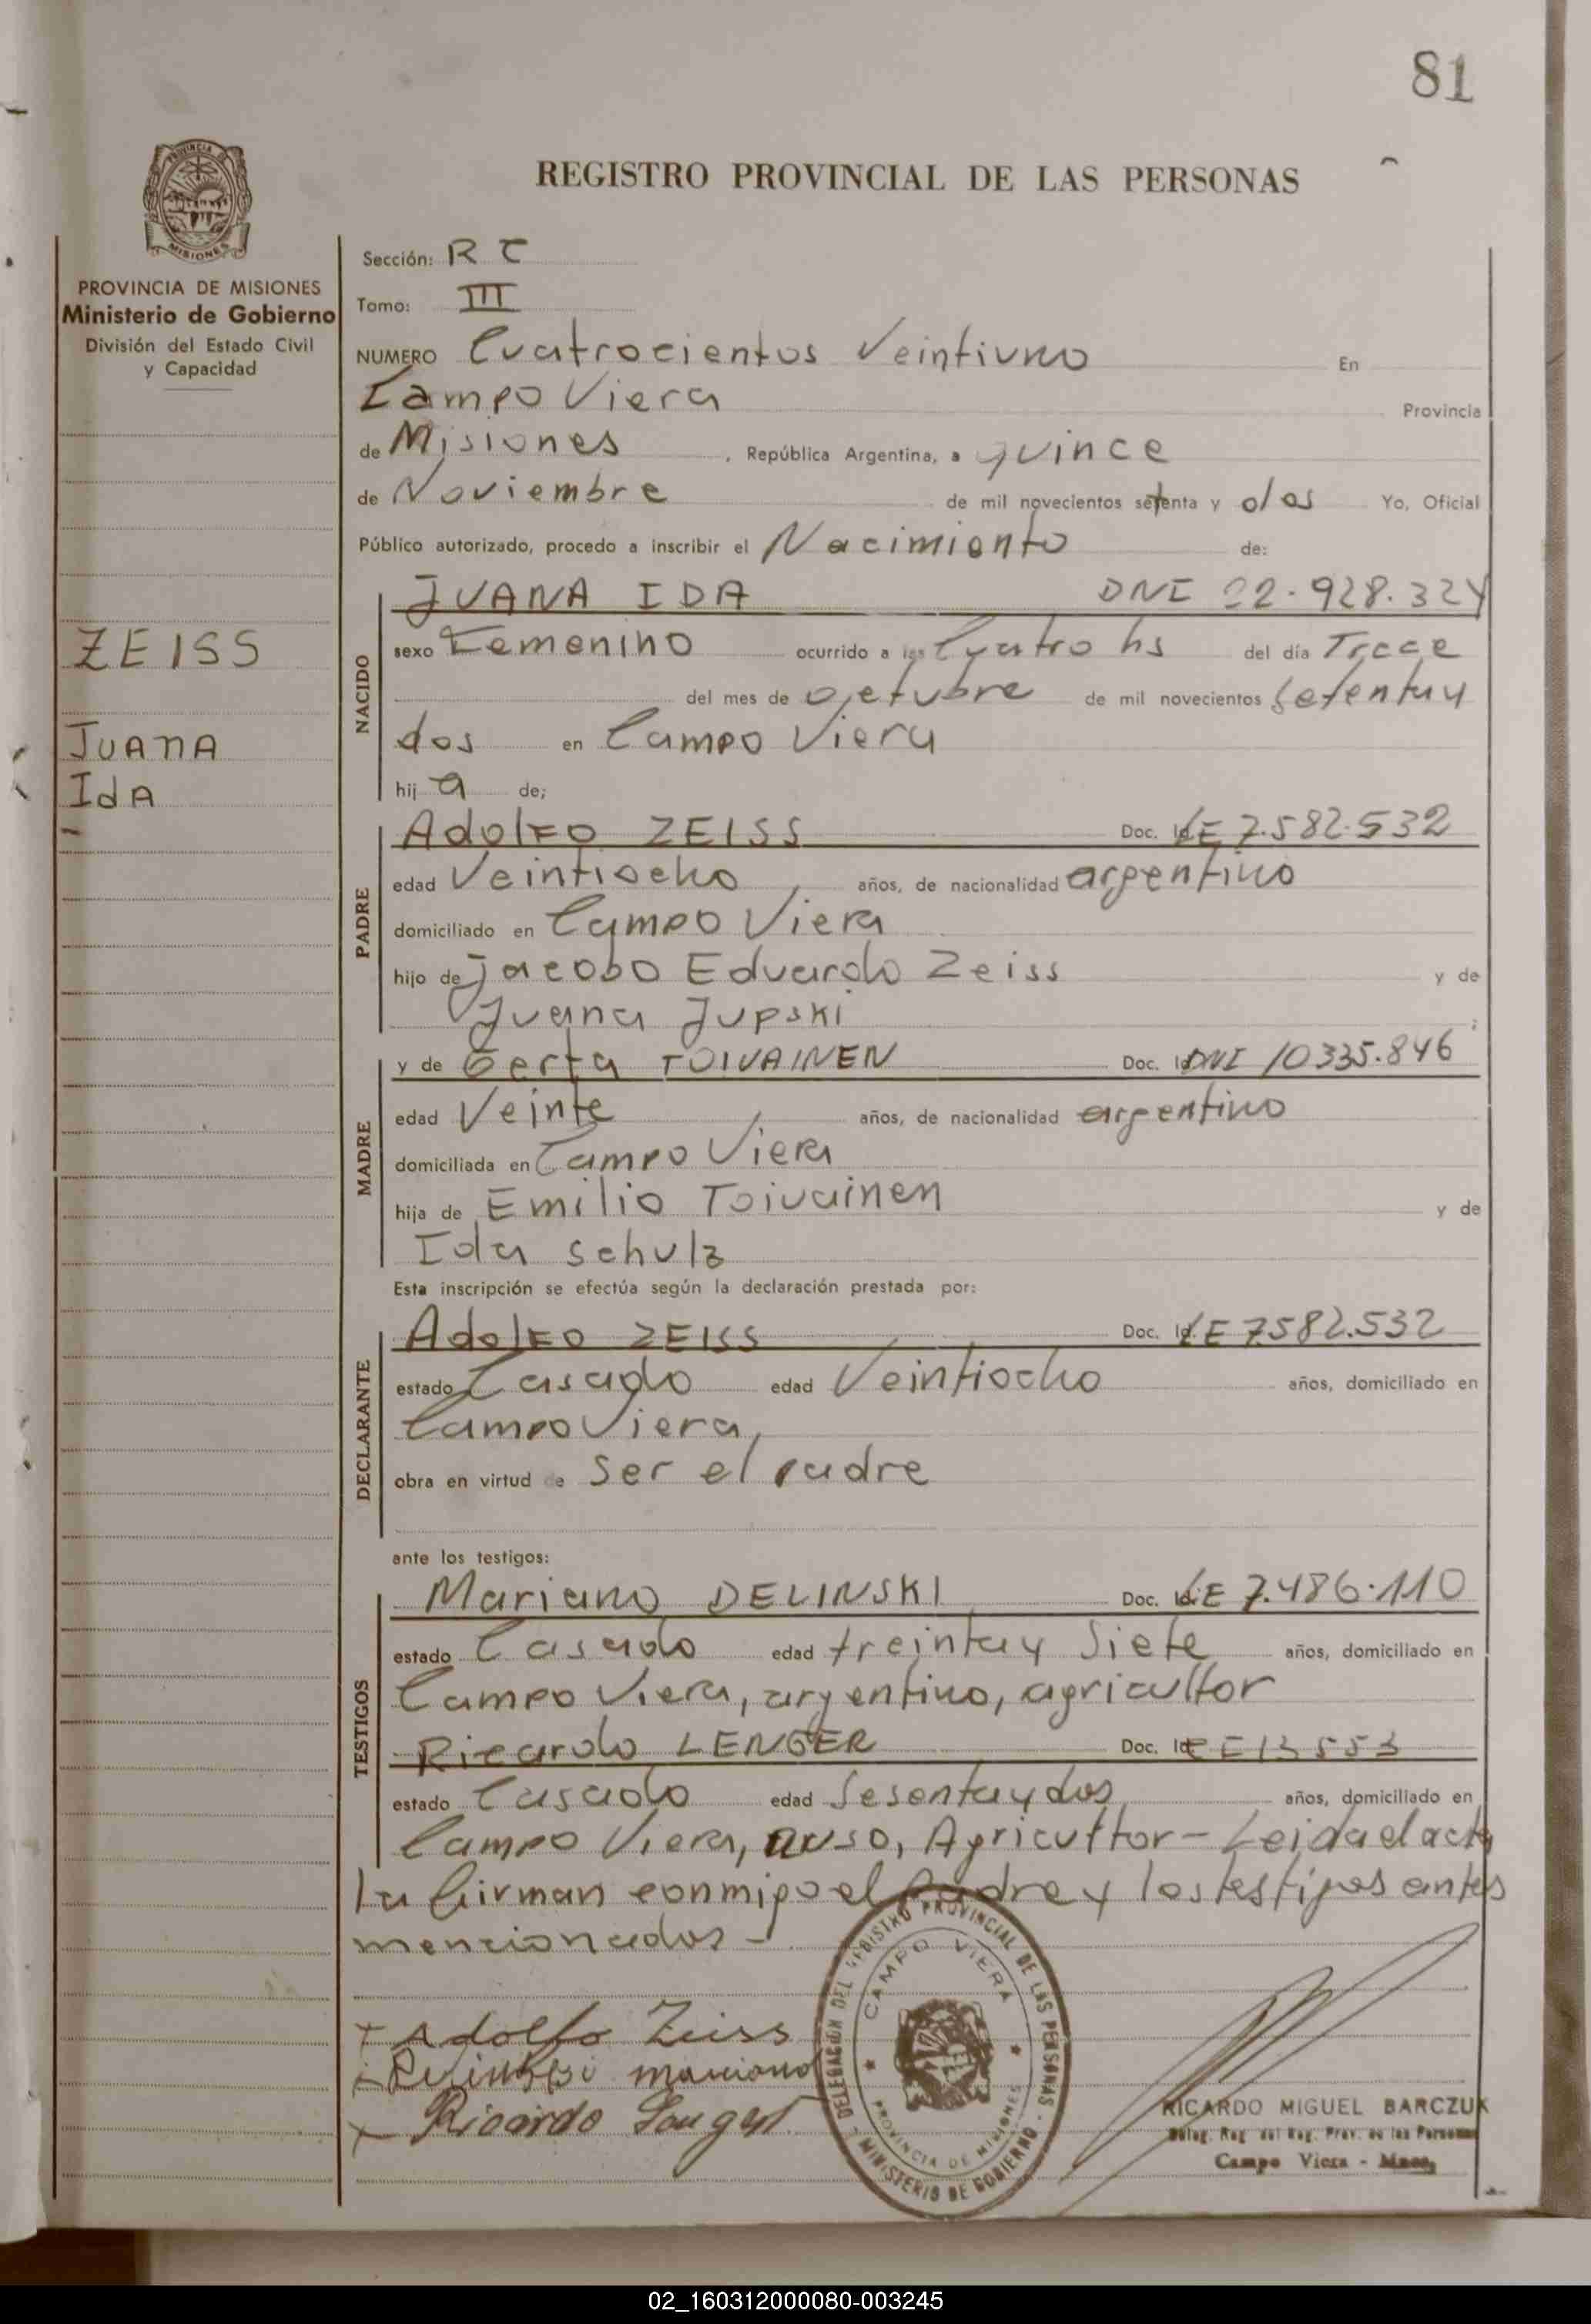 81
REGISTRO PROVINCIAL DE LAS PERSONAS
MISIONES
PROVINCIA DE MISIONES
Ministerio de Gobierno
División del Estado Civil
y Capacidad
ZEISS
JUANA
IdA
Sección: R C
Tomo: III
NUMERO Cuatrocientos Veintiuno En
Campo Viera Provincia
de Misiones, República Argentina, a quince
de Noviembre de mil novecientos setenta y dos Yo, Oficial
Público autorizado, procedo a inscribir el Nacimiento de:
NACIDO
JUANA IDA DNI 22.928.324
sexo Femenino ocurrido a las Cuatro hs del día Trece
del mes de octubre de mil novecientos setentay
dos en Campo Viera
hij a de;
PADRE
Adolfo ZEISS Doc. Id. LE 7.582.532
edad Veintiocho, años, de nacionalidad argentino
domiciliado en Campo Viera
hijo de Jacobo Eduardo Zeiss y de
Juana Jupski ;
MADRE
y de Gerta TOIVAINEN Doc. Id. DNI 10335.846
edad Veinte, años, de nacionalidad argentino
domiciliada en Campo Viera
hija de Emilio Toivainen y de
Ida Schulz
Esta inscripción se efectúa según la declaración prestada por:
DECLARANTE
Adolfo ZEISS Doc. Id. LE 7582.532
estado Casado edad Veintiocho años, domiciliado en
Campo Viera,
obra en virtud de Ser el padre
ante los testigos:
TESTIGOS
Mariano DELINSKI Doc. Id. LE 7.486.110
estado Casado edad treintay Siete años, domiciliado en
Campo Viera, argentino, agricultor
Ricardo LENGER Doc. Id. CE 13553
estado Casado edad Sesentaydos años, domiciliado en
Campo Viera, ruso, Agricultor - Leida el acta
La firman conmigo el Padre y los testigos antes
mencionados -
Adolfo Zeiss
mariano
Ricardo
DELEGACIÓN DEL REGISTRO PROVINCIAL DE LAS PERSONAS
CAMPO VIERA
PROVINCIA DE MISIONES
MINISTERIO DE GOBIERNO
RICARDO MIGUEL BARCZUK
Deleg. Reg. del Reg. Prov. de las Personas
Campo Viera - Mnes.
02_160312000080-003245